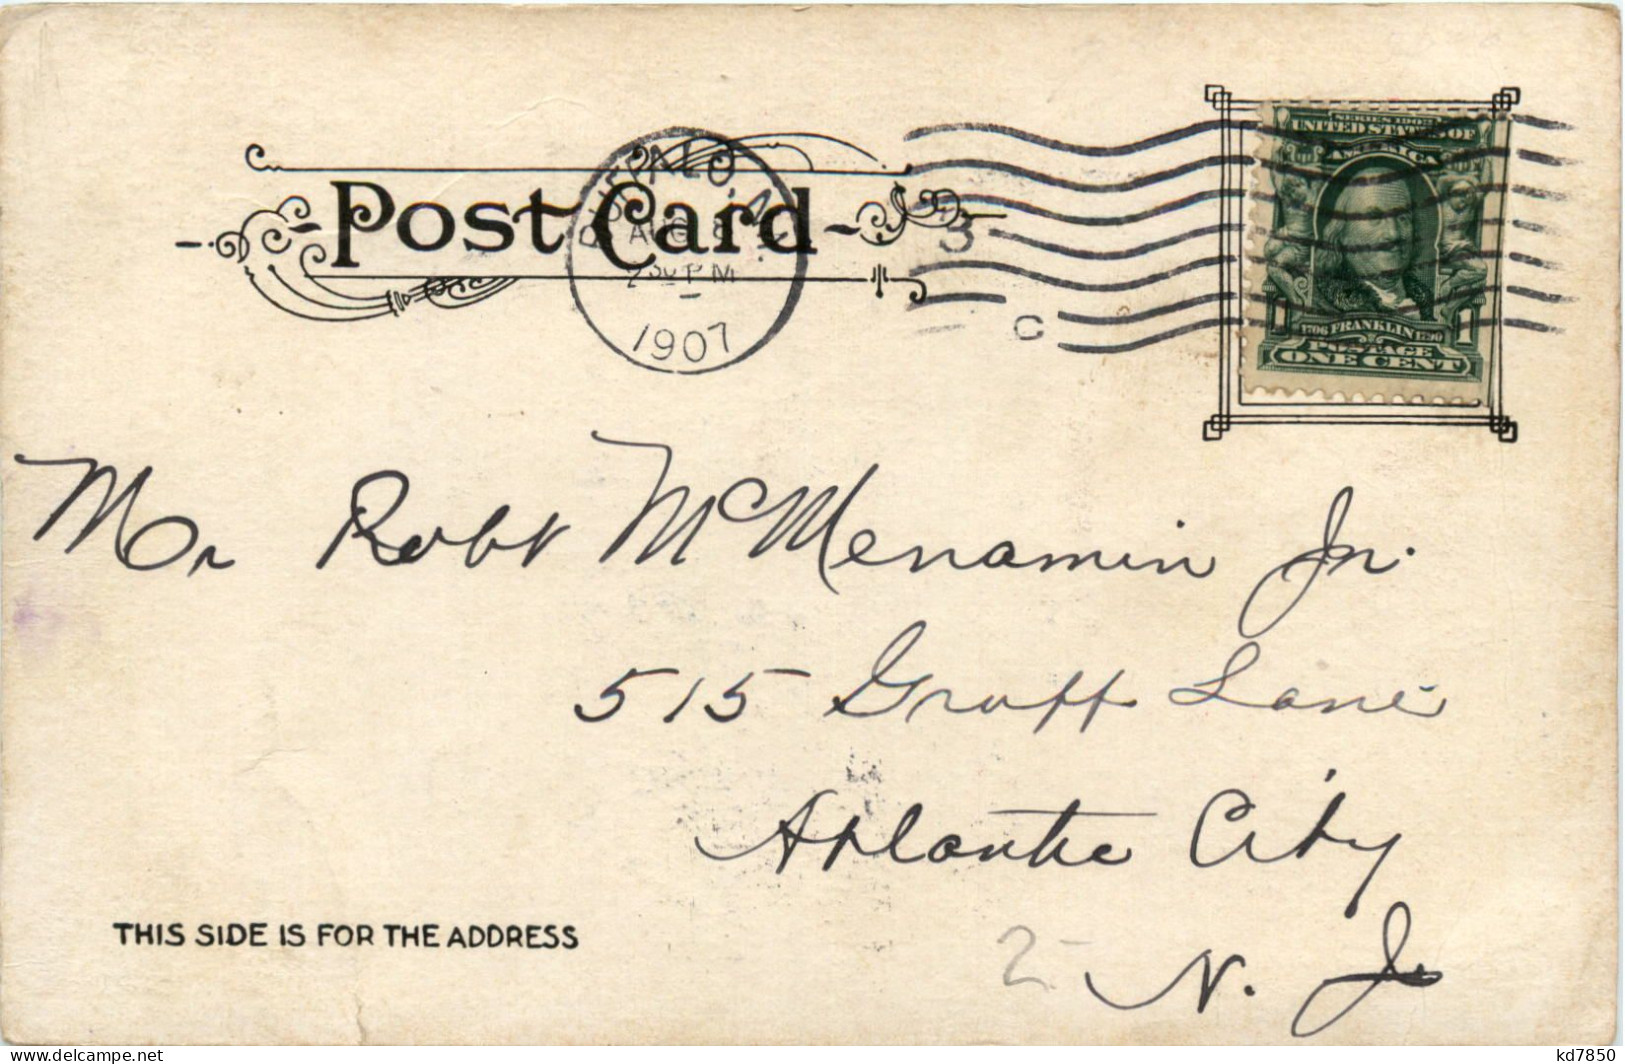 Post Card
BUFFALO, N.Y.
AUG 8
2 30 PM
1907
3
C
SERIES 1902
UNITED STATES OF
AMERICA
1706 FRANKLIN 1790
1 1
POSTAGE
ONE CENT
Mr Robt McMenamin Jr.
515 Groff Lane
Atlantic City
N. J.
2-
THIS SIDE IS FOR THE ADDRESS
delcampe.net
kd7850